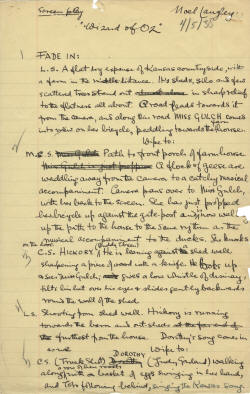 Screen play
Noel Langley
"Wizard of OZ"
4/5/38
FADE IN:
L.S. A flat dry expanse of Kansas countryside, with
a farm in the middle distance. Its sheds, silo and few
scattered trees stand out in sharp relief
to the flatness all about. A road leads towards it
from the camera, and along has road MISS GULCH comes
into view on her bicycle, peddling towards the farm
house.
Wipe to:
M.C.S. Path to front porch of farmhouse
A flock of geese are
waddling away from the camera to a catchy musical
accompaniment. Camera pans over to Miss Gulch,
with her back to the screen. She has just propped
her bicycle up against the gate-post and now walks
up the path to the house to the same rhythm as the
musical accompaniment to the ducks. She knocks
on the door.
C.S. HICKORY. He is leaning against the shed wall
sharpening a piece of wood with a knife. He looks up
sees Miss Gulch, gives a low whistle of dismay,
tilts his hat over his eye & slides gently backwards
round the wall of the shed.
L.S. Shooting from shed wall. Hickory is running
towards the barn and out sheds
furthest from the house. Dorothy's song comes in
over
Wipe to:
C.S. (Truck Shot) DOROTHY (Judy Garland) walking
along with a basket of eggs swinging in her hand,
and Toto following behind, singing the Kansas Song